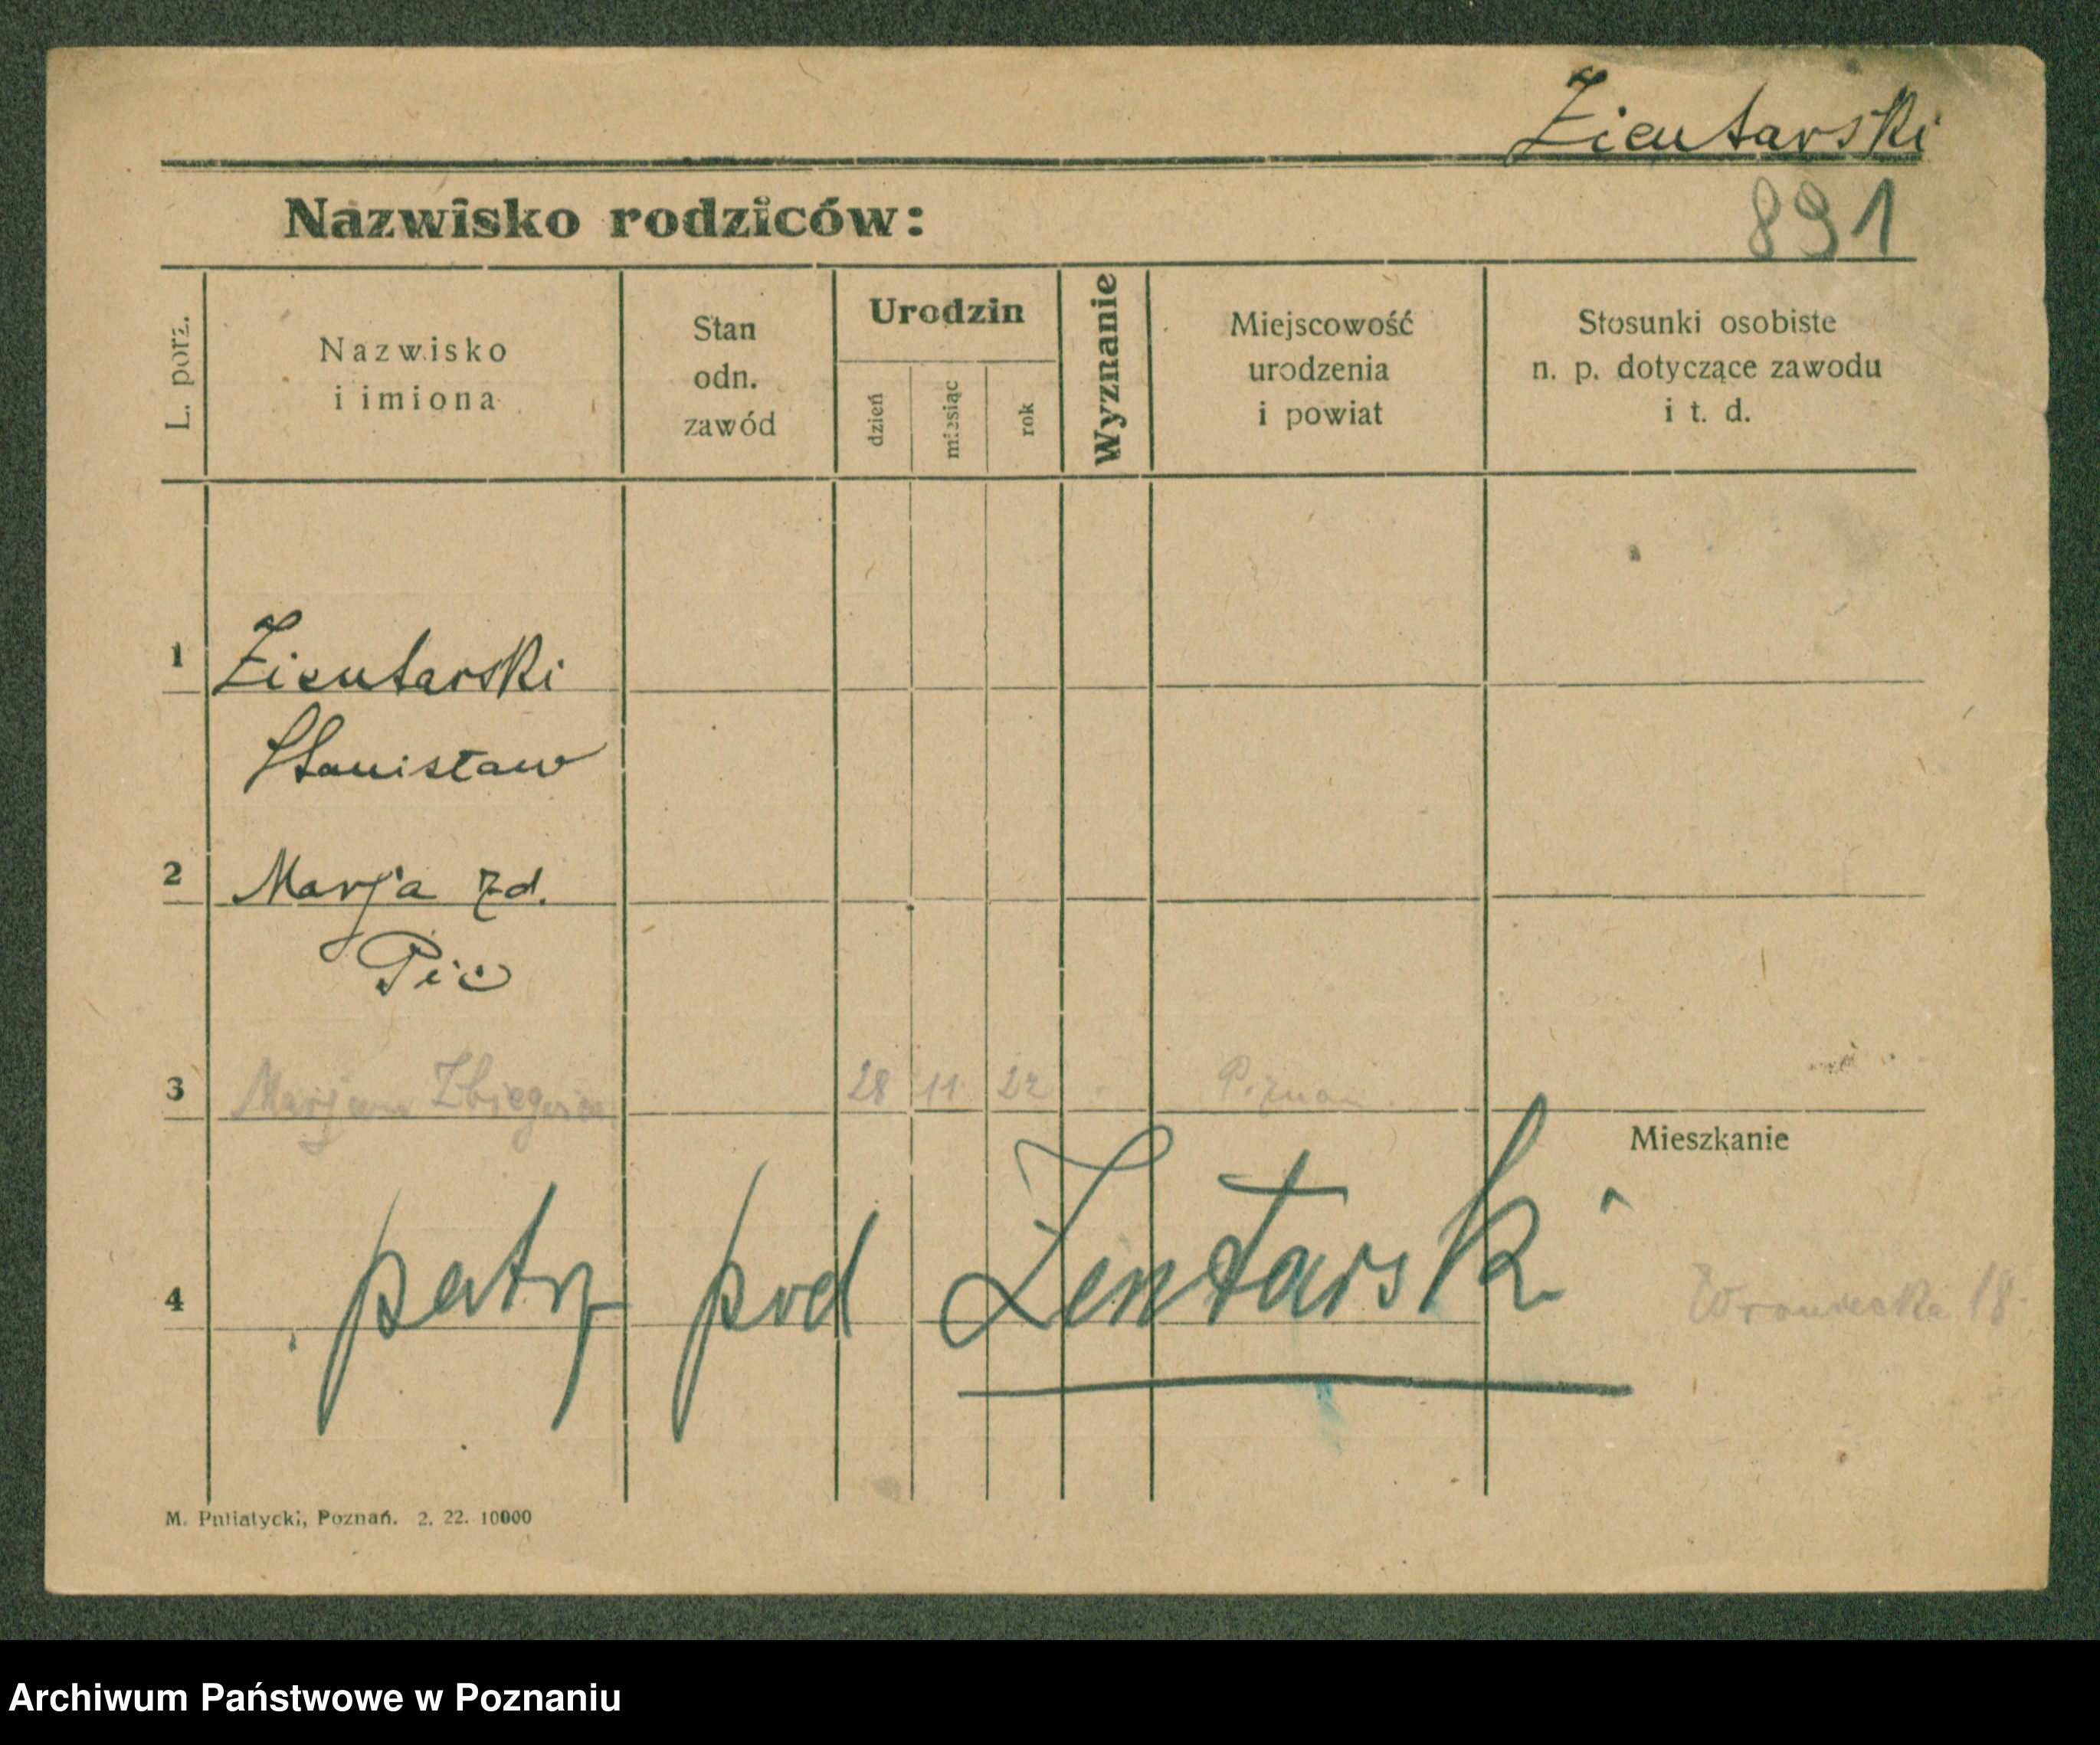 Zieutarski
Nazwisko rodziców:
891
L. porz.
Nazwisko
i imiona
Stan
odn.
zawód
Urodzin
dzień
miesiąc
rok
Wyznanie
Miejscowość
urodzenia
i powiat
Stosunki osobiste
n. p. dotyczące zawodu
i t. d.
1 Zieutarski
Stanisław
2 Marja zd.
Pic
3 Marjan Zbigniew 28 11 22 Poznań
Mieszkanie
4 patrz pod Zentarski
Wroniecka 18
M. Putiatycki, Poznań. 2. 22. 10000
Archiwum Państwowe w Poznaniu